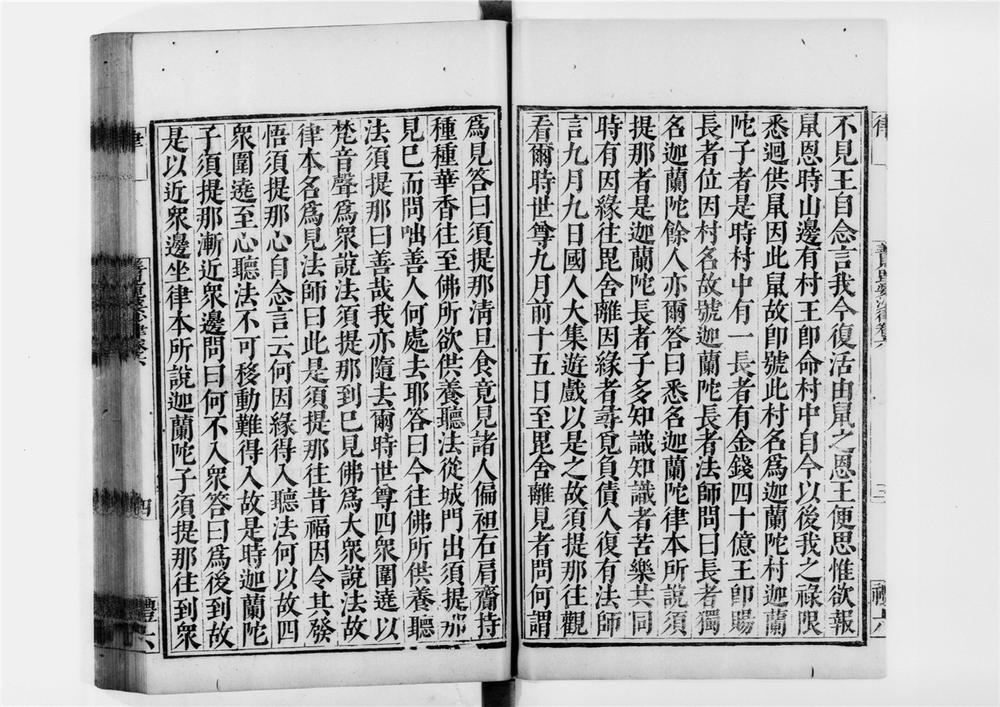 不見王自念言我今復活由鼠之恩王便思惟欲報
鼠恩時山邊有村王卽命村中自今以後我之祿限
悉迴供鼠因此鼠故卽號此村名爲迦蘭陀村迦蘭
陀子者是時村中有一長者有金錢四十億王卽賜
長者位因村名故號迦蘭陀長者法師問曰長者獨
名迦蘭陀餘人亦爾答曰悉名迦蘭陀律本所說須
提那者是迦蘭陀長者子多知識知識者苦樂共同
時有因緣往毘舍離因緣者尋覓負債人復有法師
言九月九日國人大集遊戲以是之故須提那往觀
看爾時世尊九月前十五日至毘舍離見者問何謂
爲見答曰須提那淸旦食竟見諸人偏袒右肩齎持
種種華香往至佛所欲供養聽法從城門出須提那
見已而問咄善人何處去耶答曰今往佛所供養聽
法須提那曰善哉我亦隨去爾時世尊四衆圍遶以
梵音聲爲衆說法須提那到已見佛爲大衆說法故
律本名爲見法師曰此是須提那往昔福因令其發
悟須提那心自念言云何因緣得入聽法何以故四
衆圍遶至心聽法不可移動難得入故是時迦蘭陀
子須提那漸近衆邊問曰何不入衆答曰爲後到故
是以近衆邊坐律本所說迦蘭陀子須提那往到衆
律
四
禮六